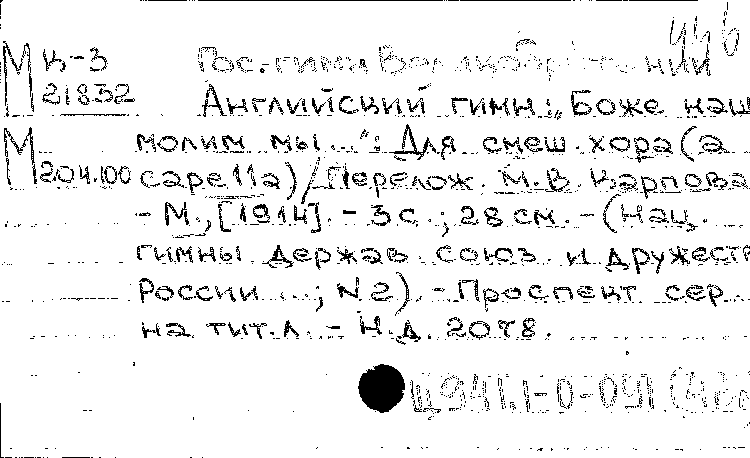 446
М К-3 Гос. гимн Великобритании
21832 Английский гимн: „Боже наш
М молим мы...": Для смеш. хора (а
204.00 capella) / Перелож. М.В. Карпова
- М., [1914]. - 3 с.; 28 см. - (Нац.
гимны держав союз. и дружеств
России ...; N 2). - Проспект сер
на тит. л. - Н.д. 2078.
Щ941.1-0-091